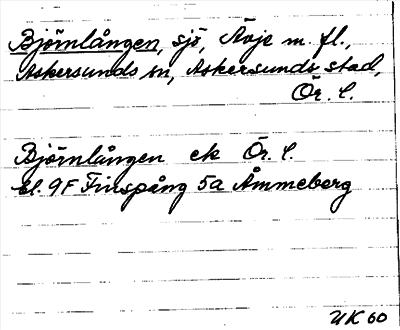 Björnlången, sjö, Åvje m. fl.,
Askersunds sn, Askersunds stad,
Ör. l.
Björnlången ek Ör. l.
bl. 9F Finspång 5a Åmmeberg
UK 60